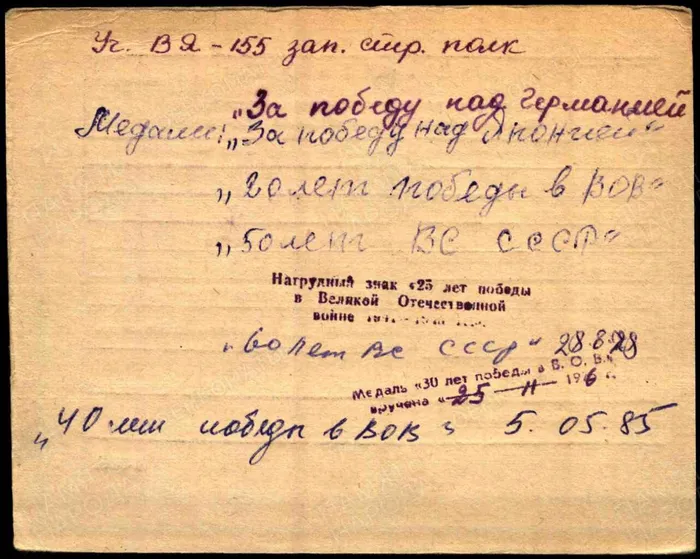 Уч. ВЯ - 155 зап. стр. полк
„За победу над Германией
Медали: „За победу над Японией"
„20 лет победы в ВОВ"
„50 лет ВС СССР"
Нагрудный знак «25 лет победы
в Великой Отечественной
войне
„60 лет ВС СССР"
Медаль «30 лет победы в В. О. В.»
вручена «25 — II — 1976 г.
„40 лет победы в ВОВ" 5.05.85